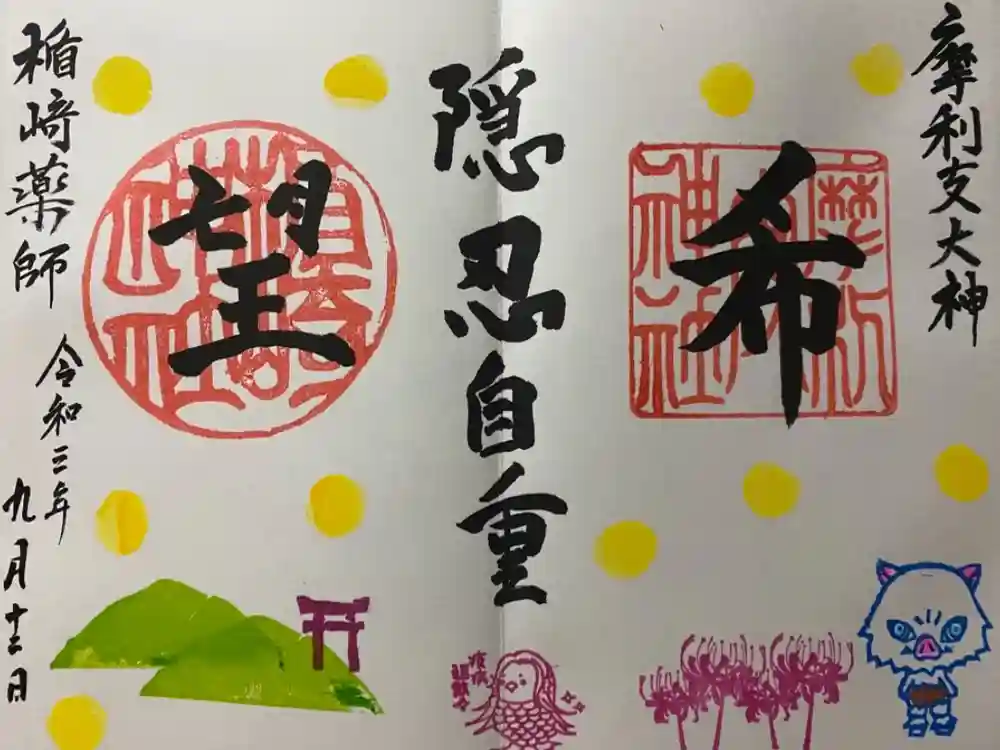 摩利支大神
希
隠忍自重
望
楯﨑薬師
令和三年
九月十二日